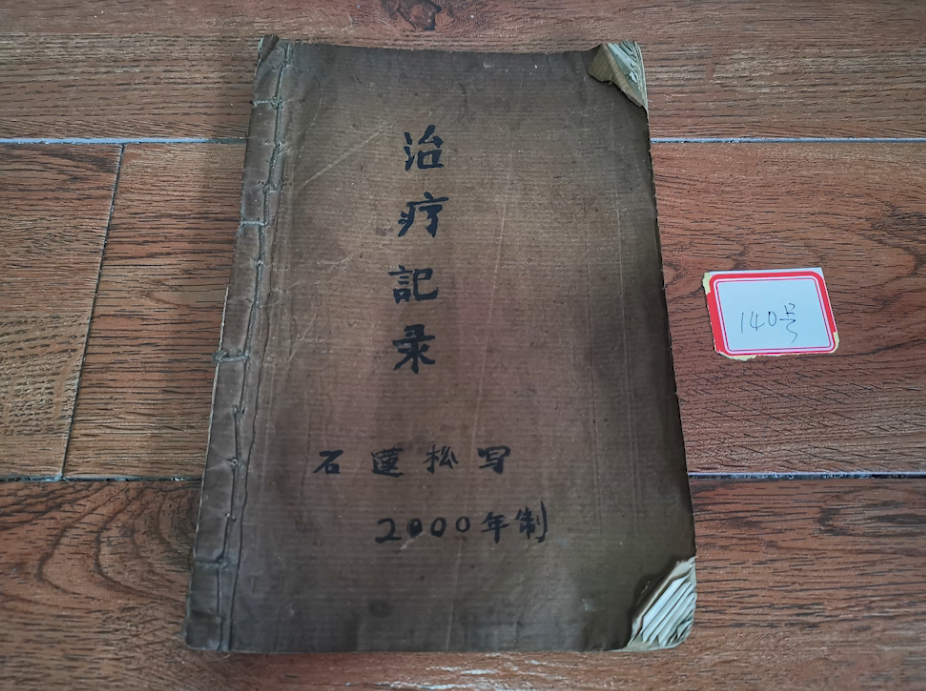 治疗記录
石莲松写
2000年制
140号